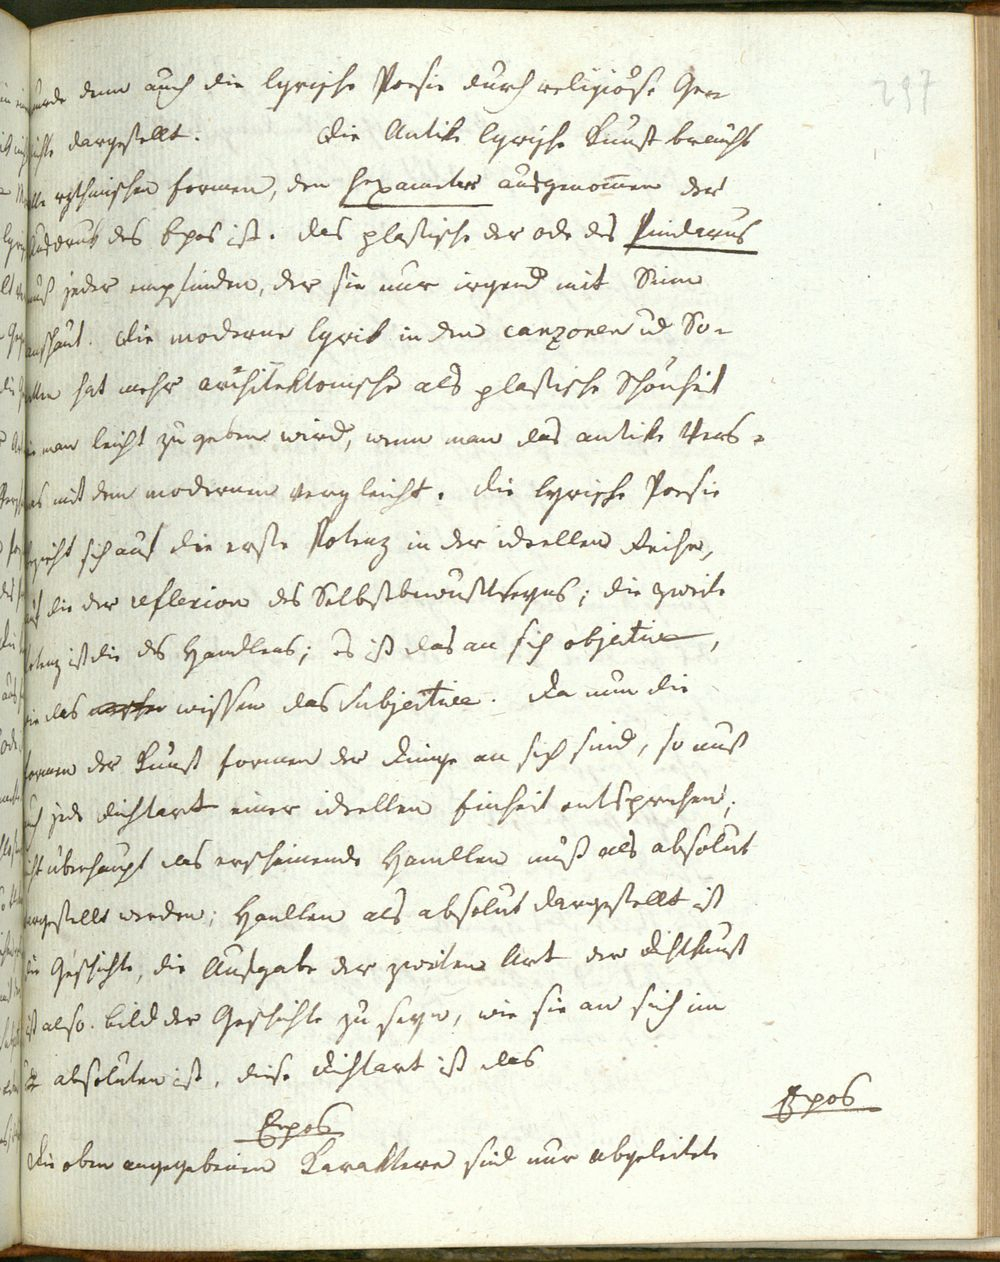 297
wurde denn auch die lyrische Poesie durch religiöse Ge-
dichte dargestellt. Die Antike lyrische Kunst braucht
alle rythmischen formen, den Hexameter ausgenom̄en der
Ausdruk des Epos ist. das plastische der ode des Pindarus
muß jeder empfinden, der sie nur irgend mit Sinn
anschaut. Die moderne lyrik in den canzonen ud So-
netten hat mehr architektonische als plastische Schönheit
wie man leicht zu geben wird, wenn man das antike Vers-
mas mit dem modernen vergleicht. die lyrische Poesie
bezieht sich auf die erste Potenz in der ideellen Reihe,
auf die der reflexion des Selbstbewustseyns; die zweite
Potenz ist die des Handlens; es ist das an sich objective,
wie das wissen das Subjective. Da nun die
formen der Kunst formen der Dinge an sich sind, so muß
auch jede dichtart einer ideellen Einheit entsprechen;
nicht überhaupt das erscheinende Handlen muß als absolut
dargestellt werden; Handlen als absolut dargestellt ist
die Geschichte, die Aufgabe der zweiten Art der dichtkunst
ist also. bild der Geschichte zu seyn, wie sie an sich im
absoluten ist, diese dichtart ist das
Epos
Epos
die oben angegebenen Karaktere sind nur abgeleitete